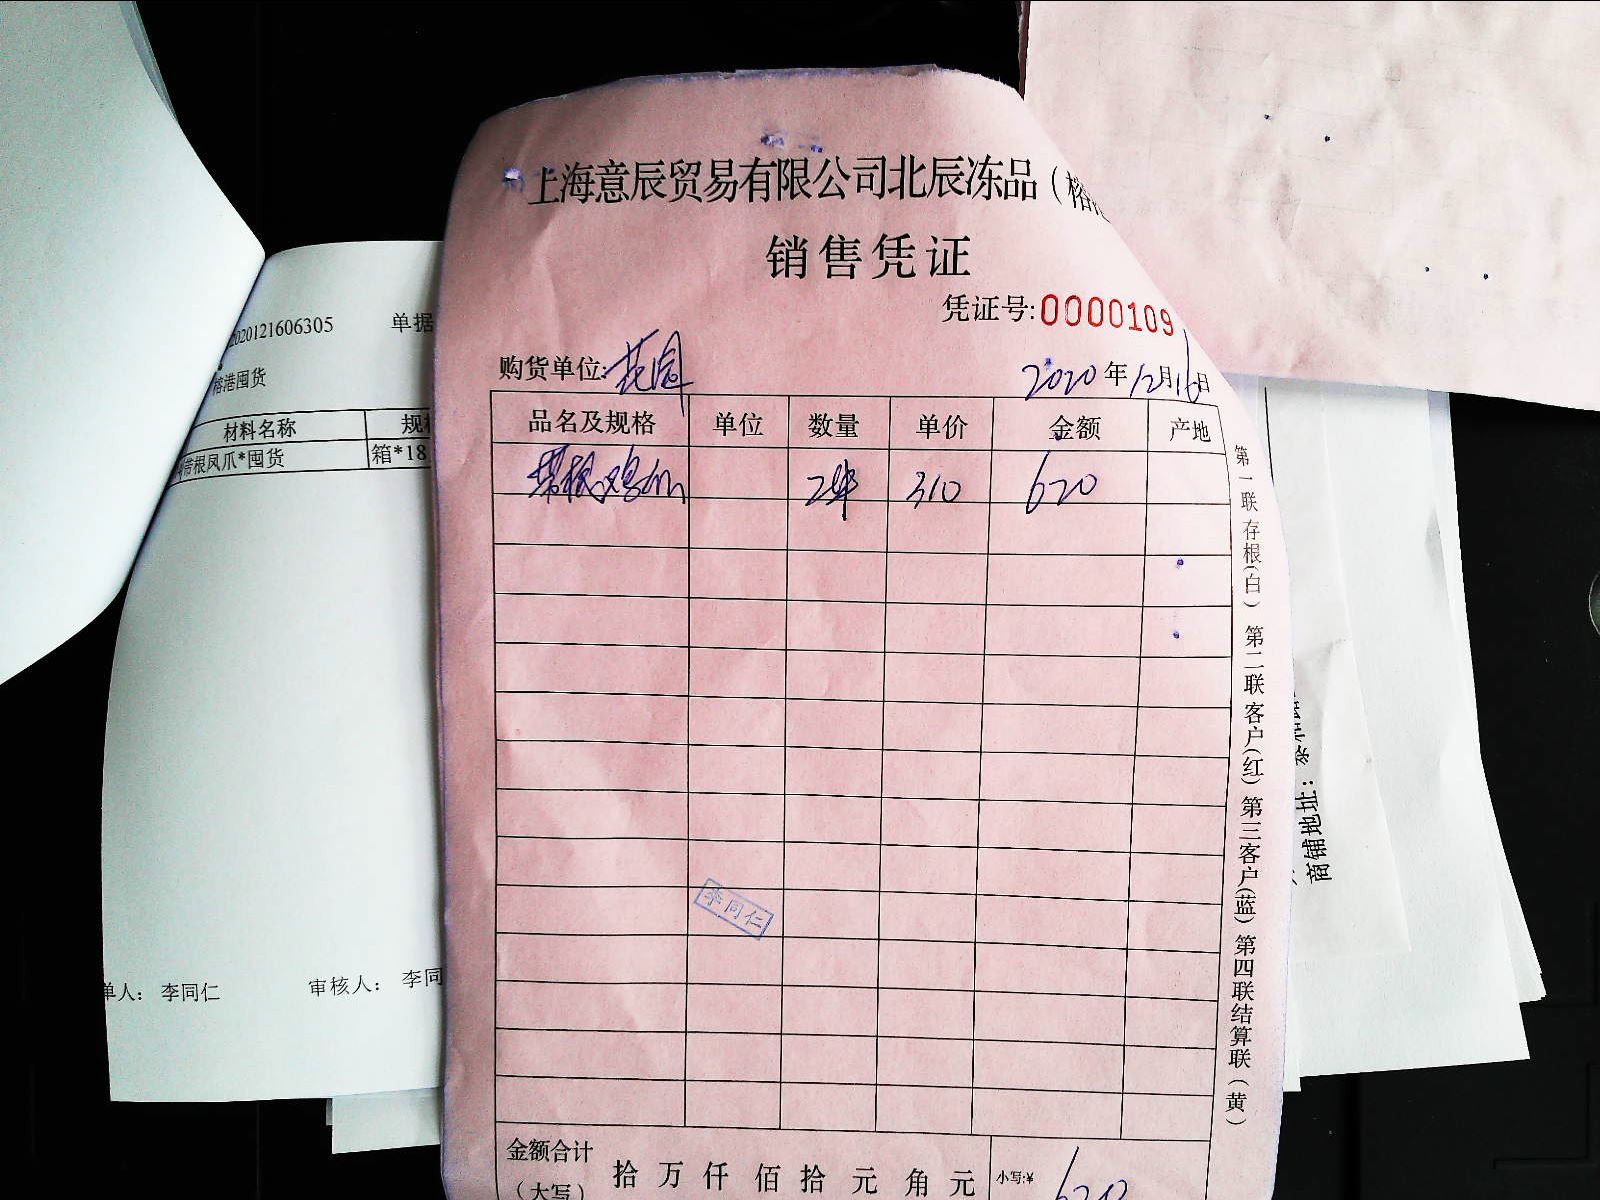 上海意辰贸易有限公司北辰冻品（榕
销售凭证
凭证号:0000109
购货单位:花园
2020年12月16日
品名及规格 单位 数量 单价 金额 产地
带根鸡爪 2件 310 620
李同仁
金额合计
（大写）
拾 万 仟 佰 拾 元 角 元
小写:¥ 620
第一联存根(白) 第二联客户(红) 第三客户(蓝) 第四联结算联(黄)
2020121606305 单据
榕港囤货
材料名称
带根凤爪*囤货 箱*18
单人： 李同仁 审核人： 李同
商铺地址：